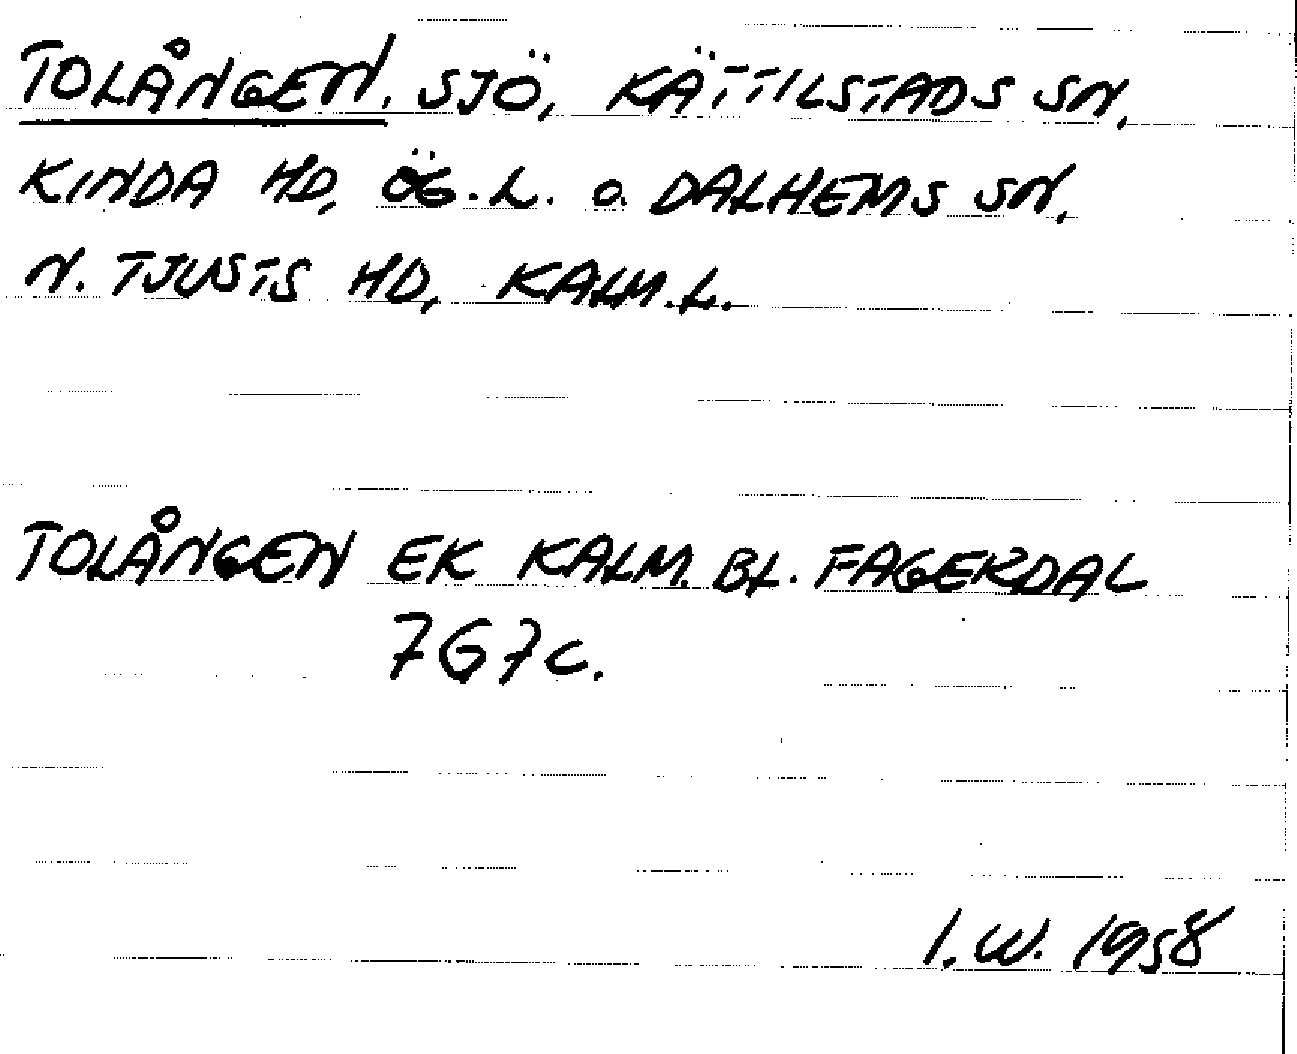 TOLÅNGEN, SJÖ, KÄTTILSTADS SN,
KINDA HD, ÖG.L. o. DALHEMS SN,
N. TJUSTS HD, KALM.L.
TOLÅNGEN EK KALM. BL. FAGERDAL
7G7c.
I.W. 1958